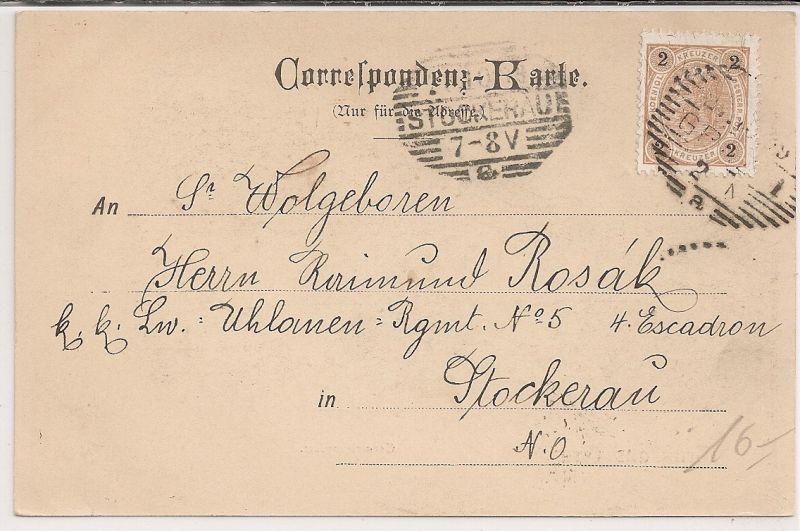 Correspondenz-Karte.
(Nur für die Adresse.)
STOCKERAU
7-8V
a
2 KREUZER 2
2
KREUZER
An Sr Wolgeboren
Herrn Raimund Rosák
k. k. Lw. = Uhlanen = Rgmt. No 5 4. Escadron
in Stockerau
N.O
16-